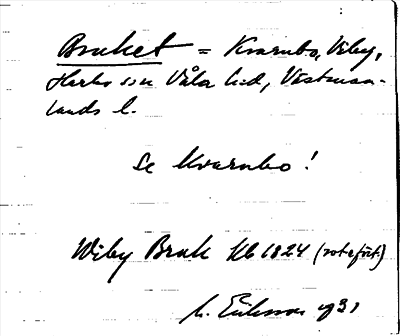 Bruket = Kvarnbo, Viby,
Harbo sn Våla hd, Västman-
lands l.
Se Kvarnbo!
Wiby Bruk Hb 1824 (rotefört.)
M. Eriksson 1931